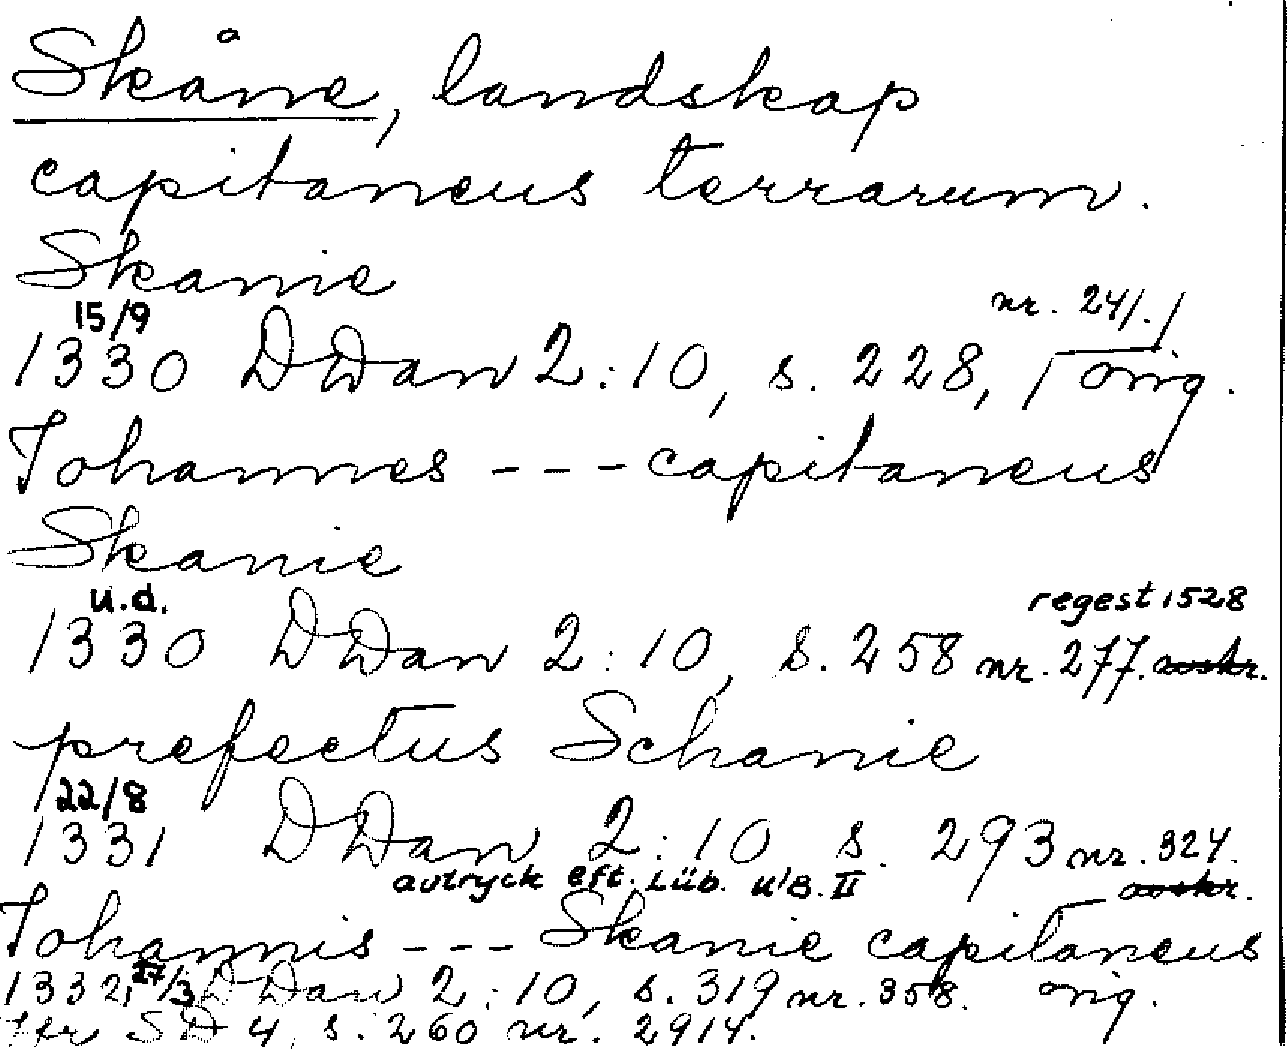 Skåne, landskap
capitaneus terrarum.
Skanie
15/9 nr. 241.
1330 DDan 2:10, s. 228, orig.
Johannes --- capitaneus
Skanie
u.d. regest 1528
1330 DDan 2:10, s. 258 nr. 277. avskr.
prefectus Schanie
22/8
1331 DDan 2:10 s. 293 nr. 324.
avtryck eft. Lüb. UB. II avskr.
Johannis --- Skanie capitaneus
1332, 27/3 DDan 2:10, s. 319 nr. 358. orig.
Jfr SD 4, s. 260 nr. 2914.